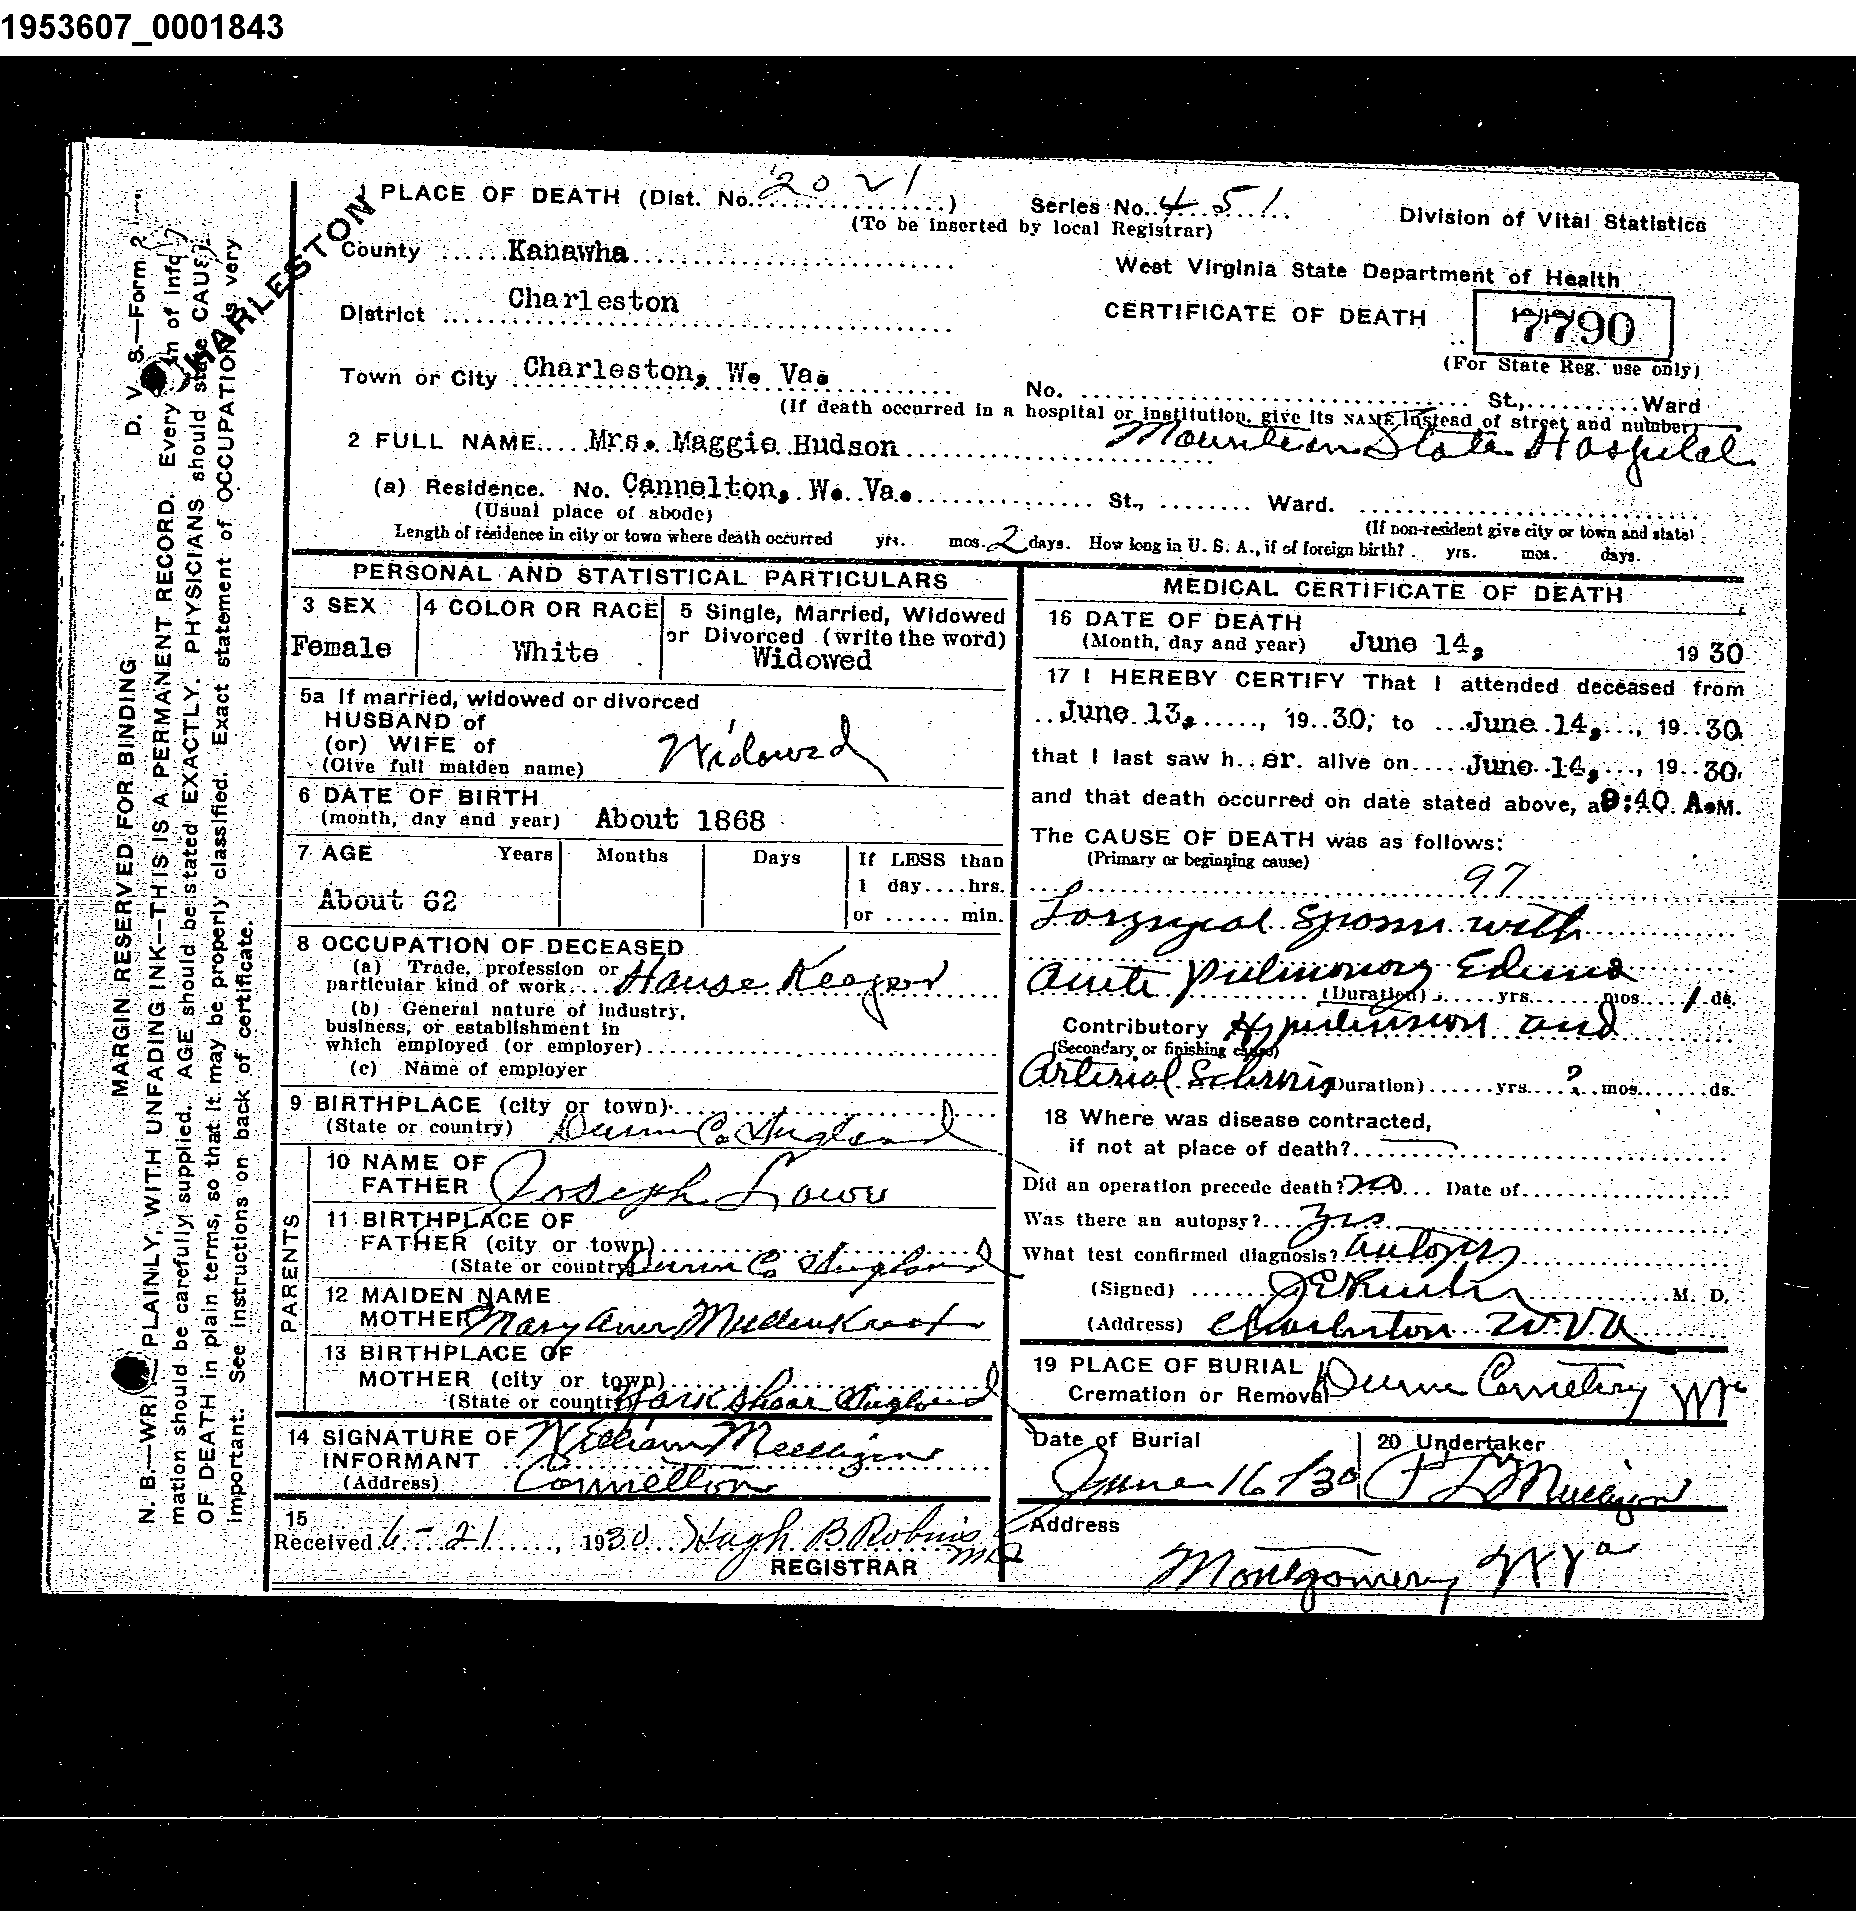 1953607_0001843
1 PLACE OF DEATH (Dist. No. 2021)
Series No. 451
(To be inserted by local Registrar)
Division of Vital Statistics
CHARLESTON
County Kanawha
West Virginia State Department of Health
District Charleston
CERTIFICATE OF DEATH
7790
(For State Reg. use only)
Town or City Charleston, W. Va.
No. St., Ward
(If death occurred in a hospital or institution, give its NAME instead of street and number)
2 FULL NAME Mrs. Maggie Hudson
Mountain State Hospital
(a) Residence. No. Cannelton, W. Va. St., Ward.
(Usual place of abode)
(If non-resident give city or town and state)
Length of residence in city or town where death occurred yrs. mos. 2 days. How long in U. S. A., if of foreign birth? yrs. mos. days.
PERSONAL AND STATISTICAL PARTICULARS
3 SEX
Female
4 COLOR OR RACE
White
5 Single, Married, Widowed
or Divorced (write the word)
Widowed
5a If married, widowed or divorced
HUSBAND of
(or) WIFE of
(Give full maiden name)
Widowed
6 DATE OF BIRTH
(month, day and year) About 1868
7 AGE Years Months Days
About 62
If LESS than
1 day....hrs.
or ...... min.
8 OCCUPATION OF DECEASED
(a) Trade, profession or
particular kind of work House Keeper
(b) General nature of industry,
business, or establishment in
which employed (or employer)
(c) Name of employer
9 BIRTHPLACE (city or town)
(State or country) Co. England
PARENTS
10 NAME OF
FATHER Joseph Lowe
11 BIRTHPLACE OF
FATHER (city or town)
(State or country) Co. England
12 MAIDEN NAME
MOTHER Mary Ann
13 BIRTHPLACE OF
MOTHER (city or town)
(State or country) York Shear England
14 SIGNATURE OF
INFORMANT William
(Address) Cannelton
15
Received 6-21, 1930 Hugh B Robins MD
REGISTRAR
MEDICAL CERTIFICATE OF DEATH
16 DATE OF DEATH
(Month, day and year) June 14, 1930
17 I HEREBY CERTIFY That I attended deceased from
June 13, 1930, to June 14, 1930
that I last saw her alive on June 14, 1930,
and that death occurred on date stated above, at 9:40 A.M.
The CAUSE OF DEATH was as follows:
(Primary or beginning cause)
97
Laryngeal spasm with
acute pulmonary Edema
(Duration) yrs. mos. 1 ds.
Contributory Hypertension and
(Secondary or finishing cause)
Arterial Sclerosis (Duration) yrs. ? mos. ds.
18 Where was disease contracted,
if not at place of death?
Did an operation precede death? no Date of
Was there an autopsy? yes
What test confirmed diagnosis? autopsy
(Signed) M. D.
(Address) Charleston W Va
19 PLACE OF BURIAL
Cremation or Removal Cemetery
Date of Burial
June 16 /30
20 Undertaker
Address
Montgomery W Va
D. V. S.—Form 2
MARGIN RESERVED FOR BINDING
N. B.—WRITE PLAINLY, WITH UNFADING INK—THIS IS A PERMANENT RECORD. Every item of infor-
mation should be carefully supplied. AGE should be stated EXACTLY. PHYSICIANS should state CAUSE
OF DEATH in plain terms, so that it may be properly classified. Exact statement of OCCUPATION is very
important. See instructions on back of certificate.